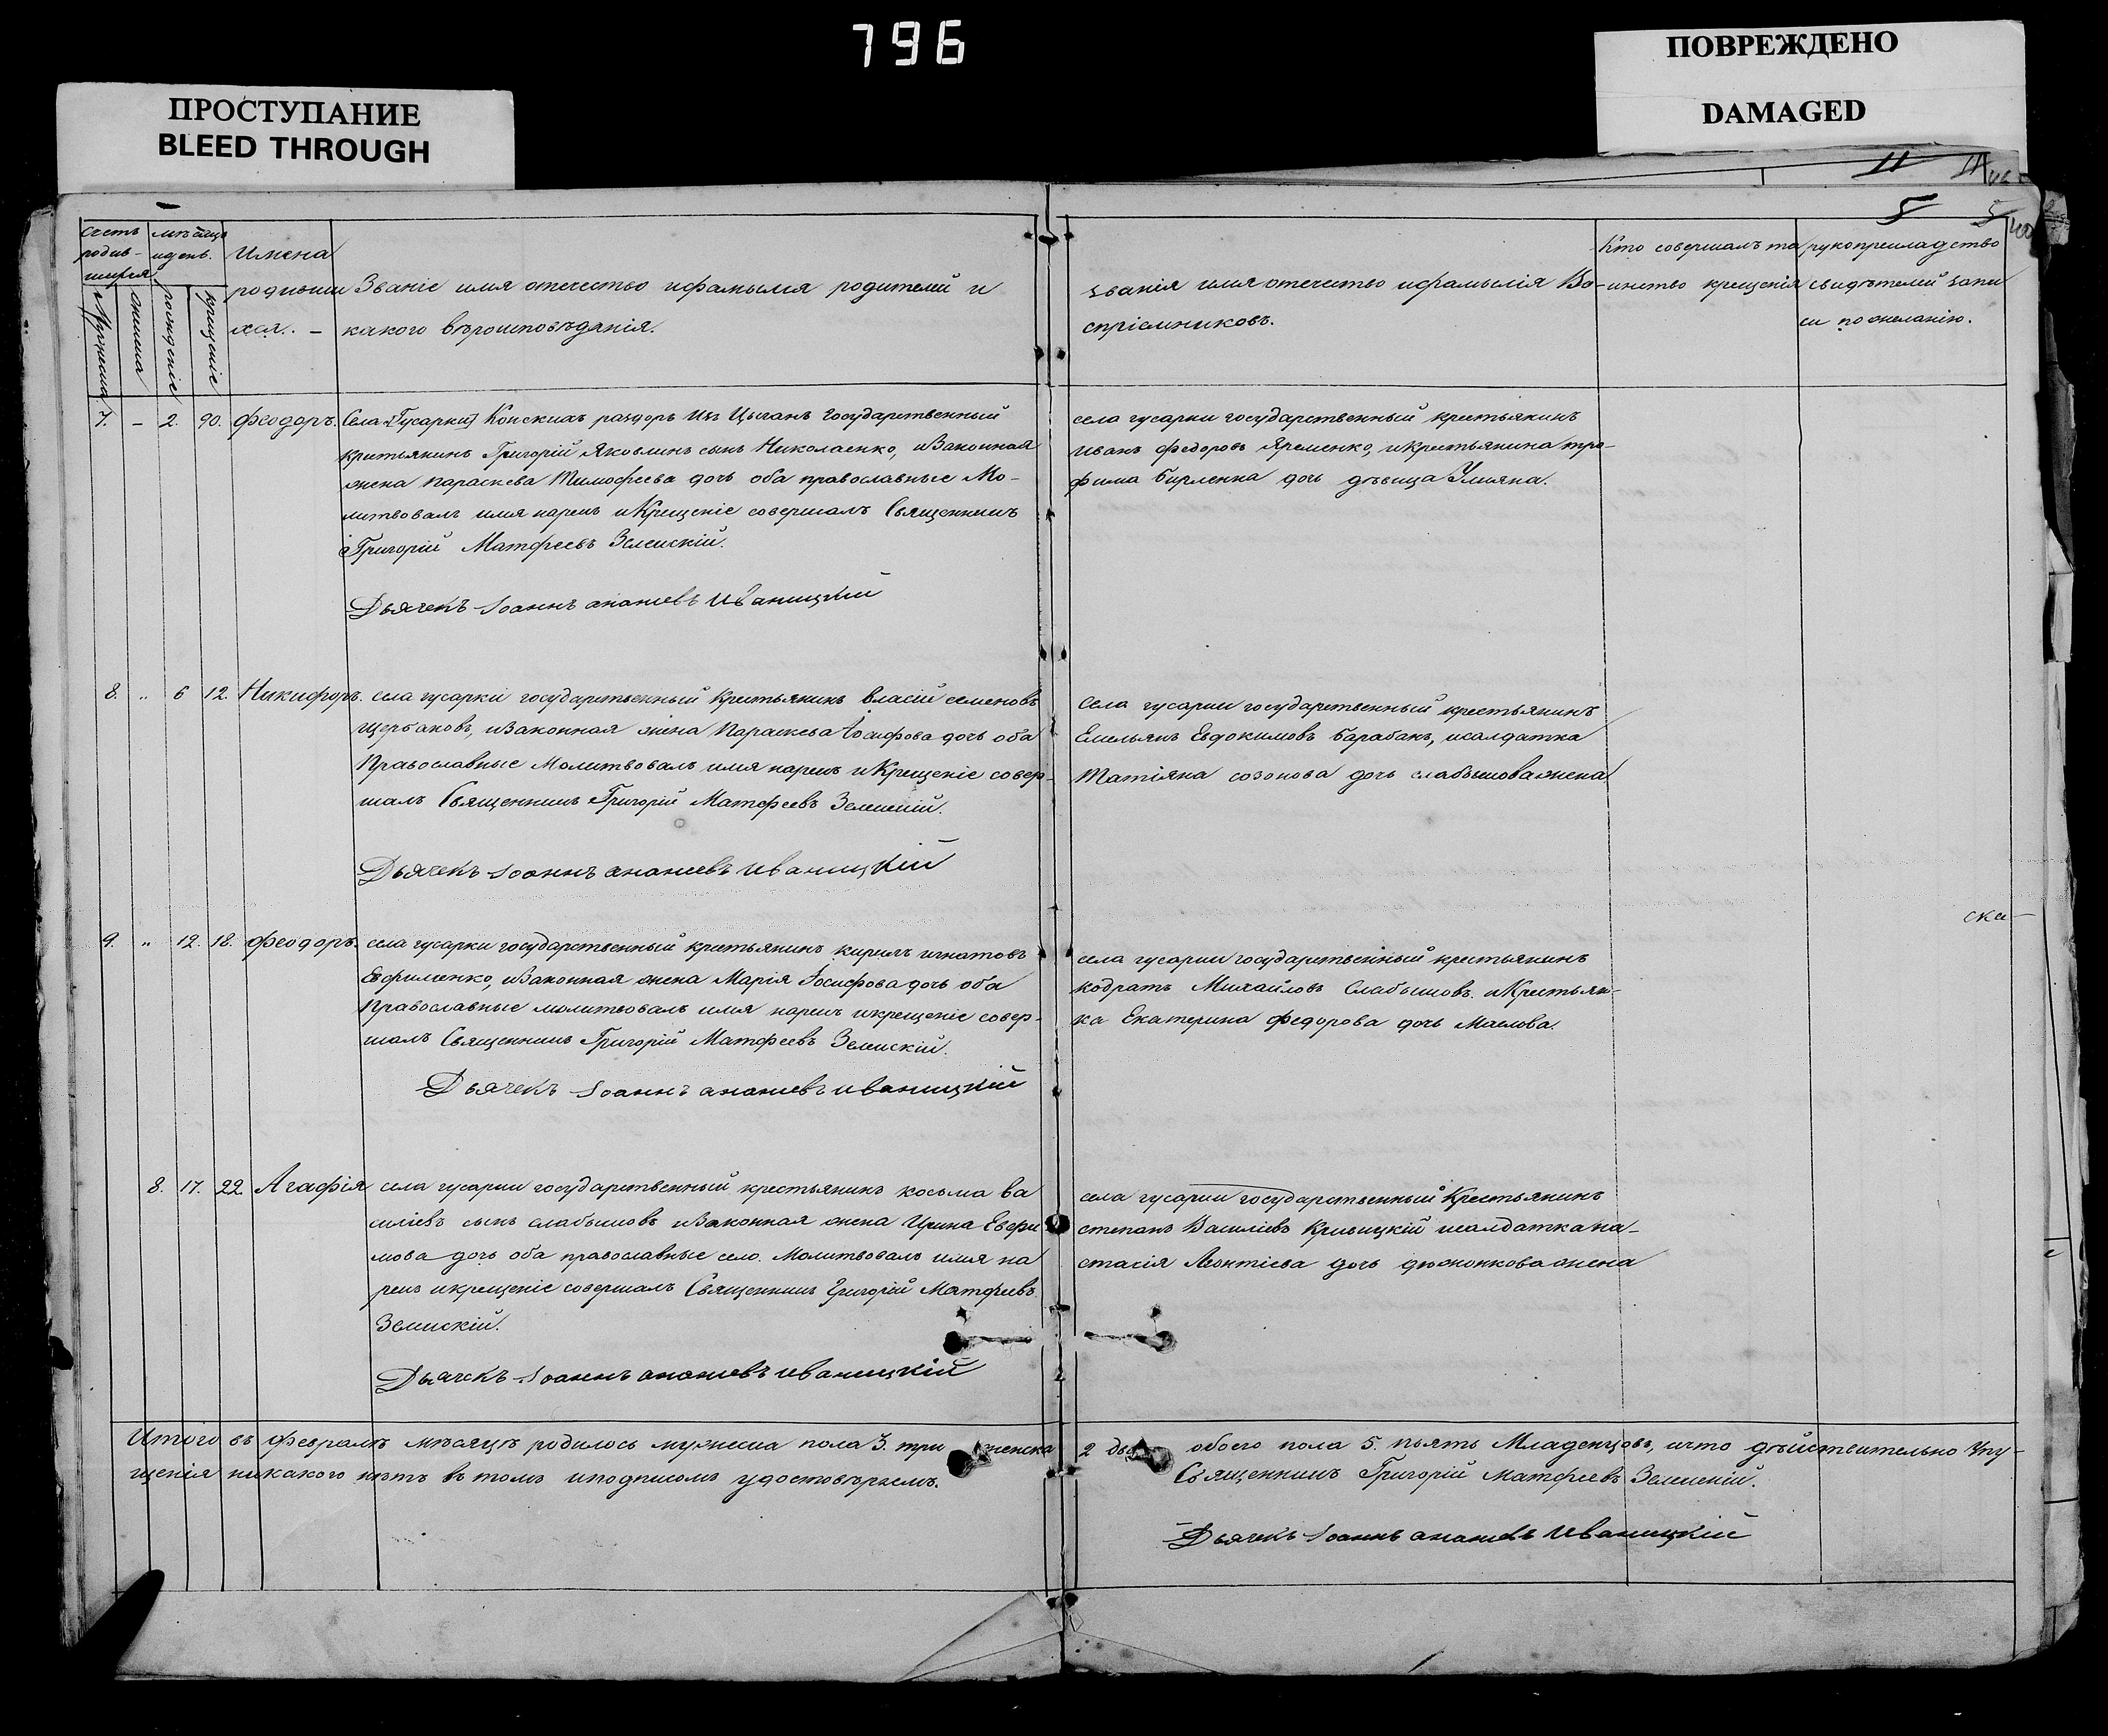 796
ПРОСТУПАНИЕ
BLEED THROUGH
ПОВРЕЖДЕНО
DAMAGED
11
5 5
счетъ родив-шихся
мужеска
женска
мѣсяцъ и день.
рожденіе
крещеніе
Имена
родивши
хся. –
Званіе имя отечество и фамилія родителей и
какого вѣроисповѣданія.
званія имя отечество и фамилія Во-
спріемниковъ.
Кто совершалъ та
инство крещенія
рукоприкладство
свидѣтелей запи
си по желанію.
7. – 2. 90. Феодоръ. Села [Гусарки] Конскихъ раздоръ Изъ Цыганъ Государственный
крестьянинъ Григорій Яковлевъ сынъ Николаенко, и Законная
жена Параскева Тимофеева дочь оба православные Мо-
литвовалъ имя нарекъ и Крещеніе совершалъ Священникъ
Григорій Матфеевъ Зеленскій.
Дьячекъ Іоаннъ ананіевъ Иваницкій
села гусарки государственный крестьянинъ
иванъ федоровъ Яременко, и крестьянина тро-
фима дочь дѣвица Улияна.
8. „ 6 12. Никифоръ. села гусаркі государственный крестьянинъ власій семеновъ
Щербаковъ, и Законная жена Параскева Іосифова дочь оба
Православные Молитвовалъ имя нарекъ и Крещеніе совер-
шалъ Священникъ Григорій Матфеевъ Зеленскій.
Дьячекъ Іоаннъ ананіевъ иваницкій
села гусарки государственный крестьянинъ
Емельянъ Евдокимовъ барабанъ, и салдатка
Татіяна созонова дочь слабышова жена
9. „ 12. 18. Феодоръ. села гусарки государственный крестьянинъ кирилъ игнатовъ
Евфименко, и Законная жена Марія Іосифова дочь оба
Православные молитвовалъ имя нарекъ и крещеніе совер-
шалъ Священникъ Григорій Матфеевъ Зеленскій.
Дьячекъ Іоаннъ ананіевъ иваницкій
села гусарки государственный крестьянинъ
кодратъ Михайловъ Слабышовъ. и Крестьян-
ка Екатерина федорова дочь Маслова.
ска–
8. 17. 22. Агафія села гусарки государственный крестьянинъ косьма ва
силіевъ сынъ слабышовъ и Законная жена Ирина Евфи
мова дочь оба православные село. Молитвовалъ имя на
рекъ и крещеніе совершалъ Священникъ Григорій Матфеевъ
Зеленскій.
Дьячекъ Іоаннъ ананіевъ иваницкій
села гусарки государственный Крестьянинъ
степанъ Василіевъ Кривицкій и салдатка на-
стасія Леонтіева дочь жена
Итого въ февралѣ мѣсяцѣ родилось мужеска пола 3. три женска 2 два обоего пола 5. пьять Младенцовъ, и что дѣйствительно Упу-
щенія никакого нѣтъ в томъ и подписомъ удостовѣряемъ. Священникъ Григорій Матфеевъ Зеленскій.
Дьячекъ Іоаннъ ананіевъ Иваницкій